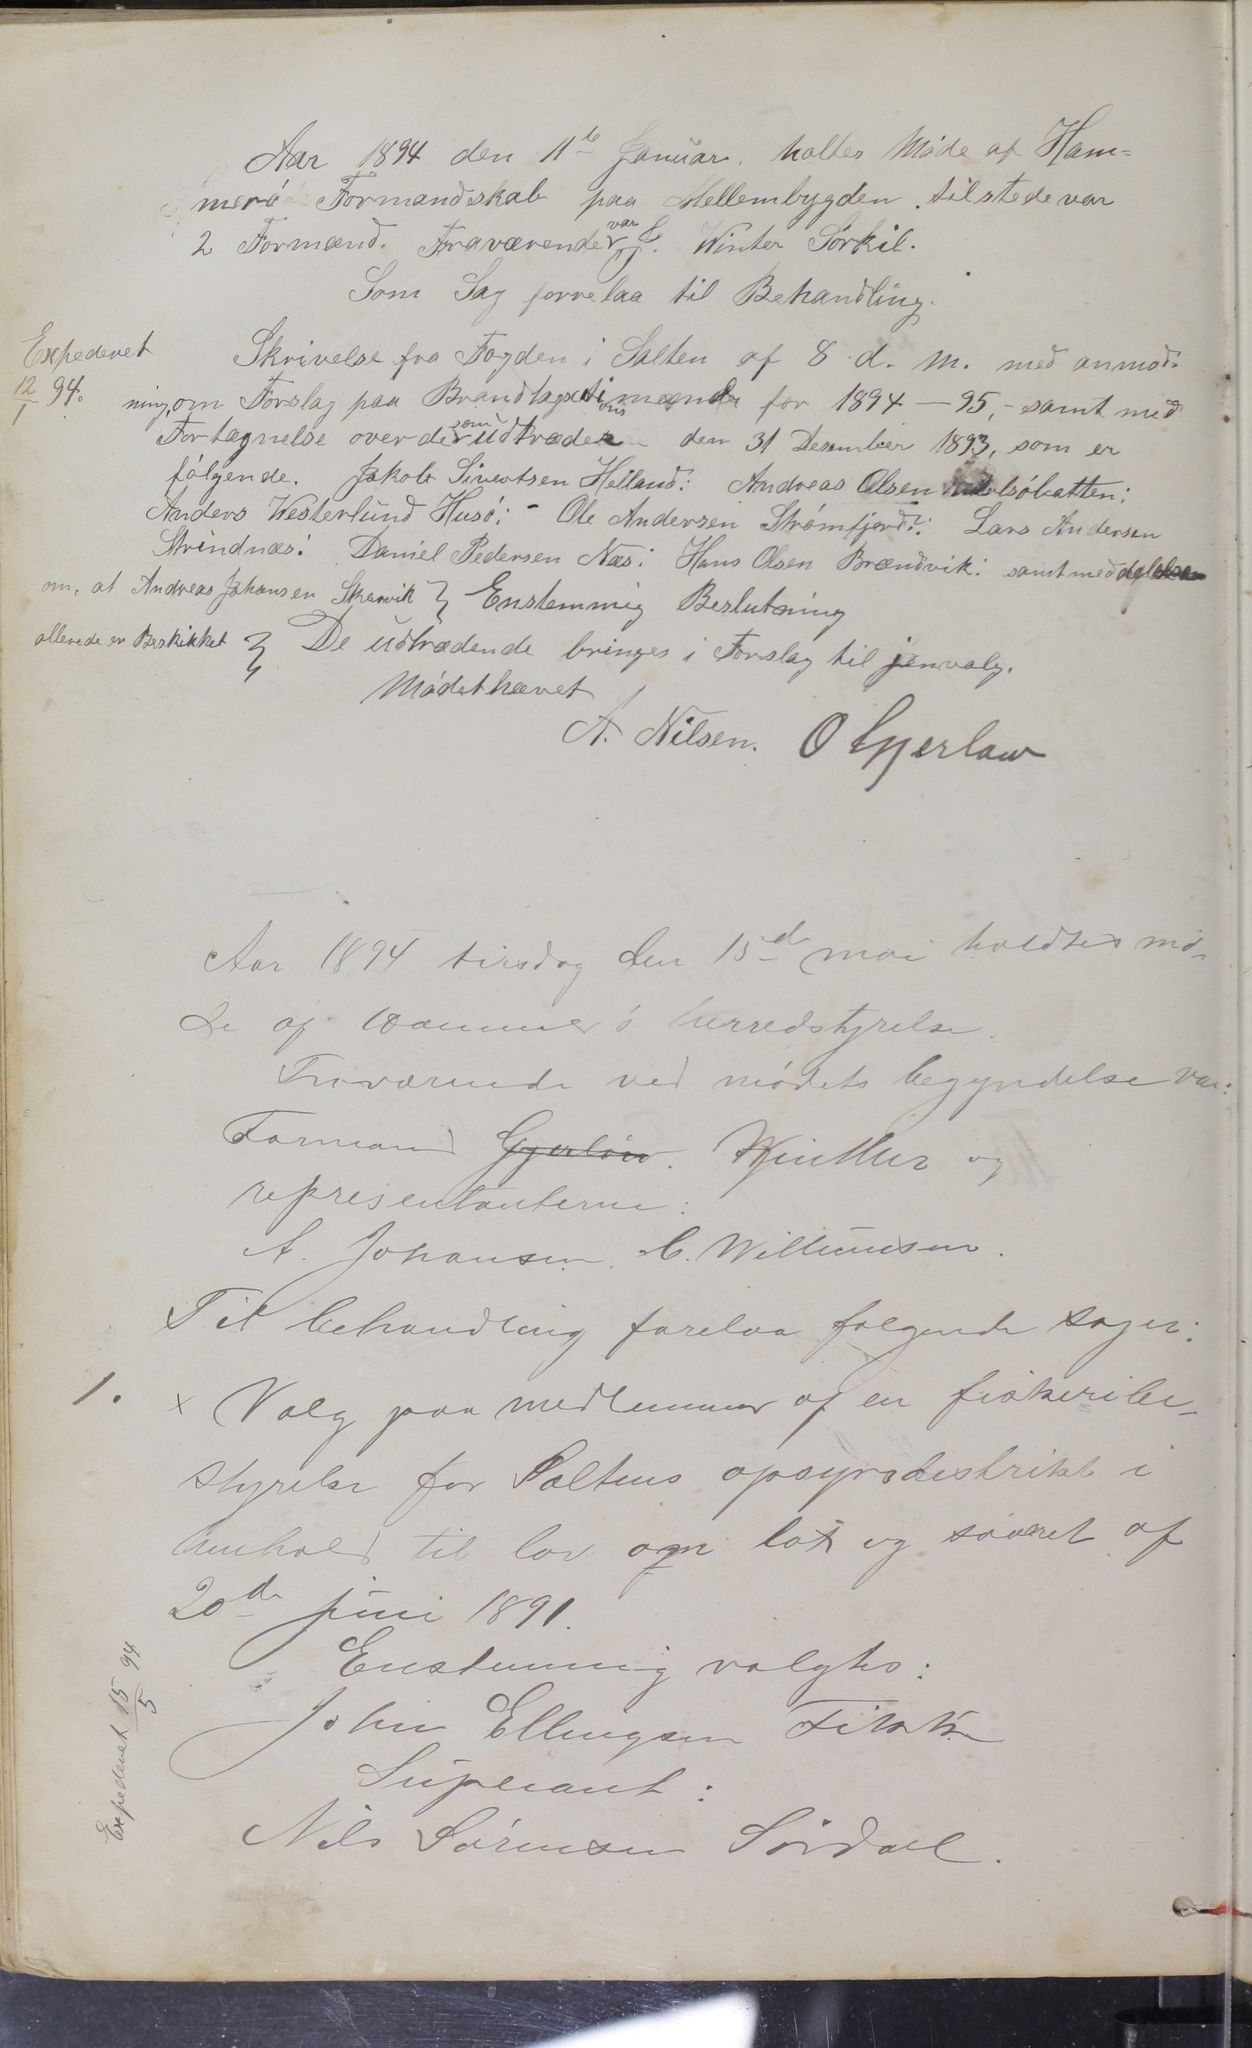 Aar 1894 den 11te Januar. holtes Møde af Ham-
merø Formandskab paa Mellembygden. tilstede var
2 Formænd. Fraværende var E. Winter Sørkil.
Som Sag forrelaa til Behandling.
Expederet
12/1 94.
Skrivelse fra Fogden i Salten af 8 d. M. med anmod-
ning, om Forslag paa Brandtagstionsmænd for 1894 — 95, - samt med
Fortægnelse over de som udtræder den 31 Desember 1893, som er
følgende. Jakob Sivertsen Helland: Andreas Olsen
Anders Westerlund Husø: - Ole Andersen Strømfjord: Lars Andersen
Strindnæs: Daniel Pedersen Næs: Hans Olsen Brændvik: samt meddelelse
om, at Andreas Johansen Skarvik } Enstemmig Beslutning
allerede er Beskikket } De udtrædende bringes i Forslag til jenvalg.
Mødet hævet
A. Nilsen. O Gjerløw
Aar 1894 tirsdag den 15de mai holdtes mø-
de af Hammerø herredstyrelse.
Fraværende ved mødets begyndelse var:
Formand Gjerløw. Winther og
representanterne:
A. Johansen, C. Willumsen.
Til behandling forelaa følgende sager:
1. x Valg paa medlemmer af en fiskeribe-
styrelse for Saltens opsynsdistrikt i
henhold til lov om lax og søøret af
20de juni 1891.
Enstemmig valgtes:
John Ellingsen Tilthe
Supleant:
Nils Sørensen Sørdal.
Expederet 15/5 94